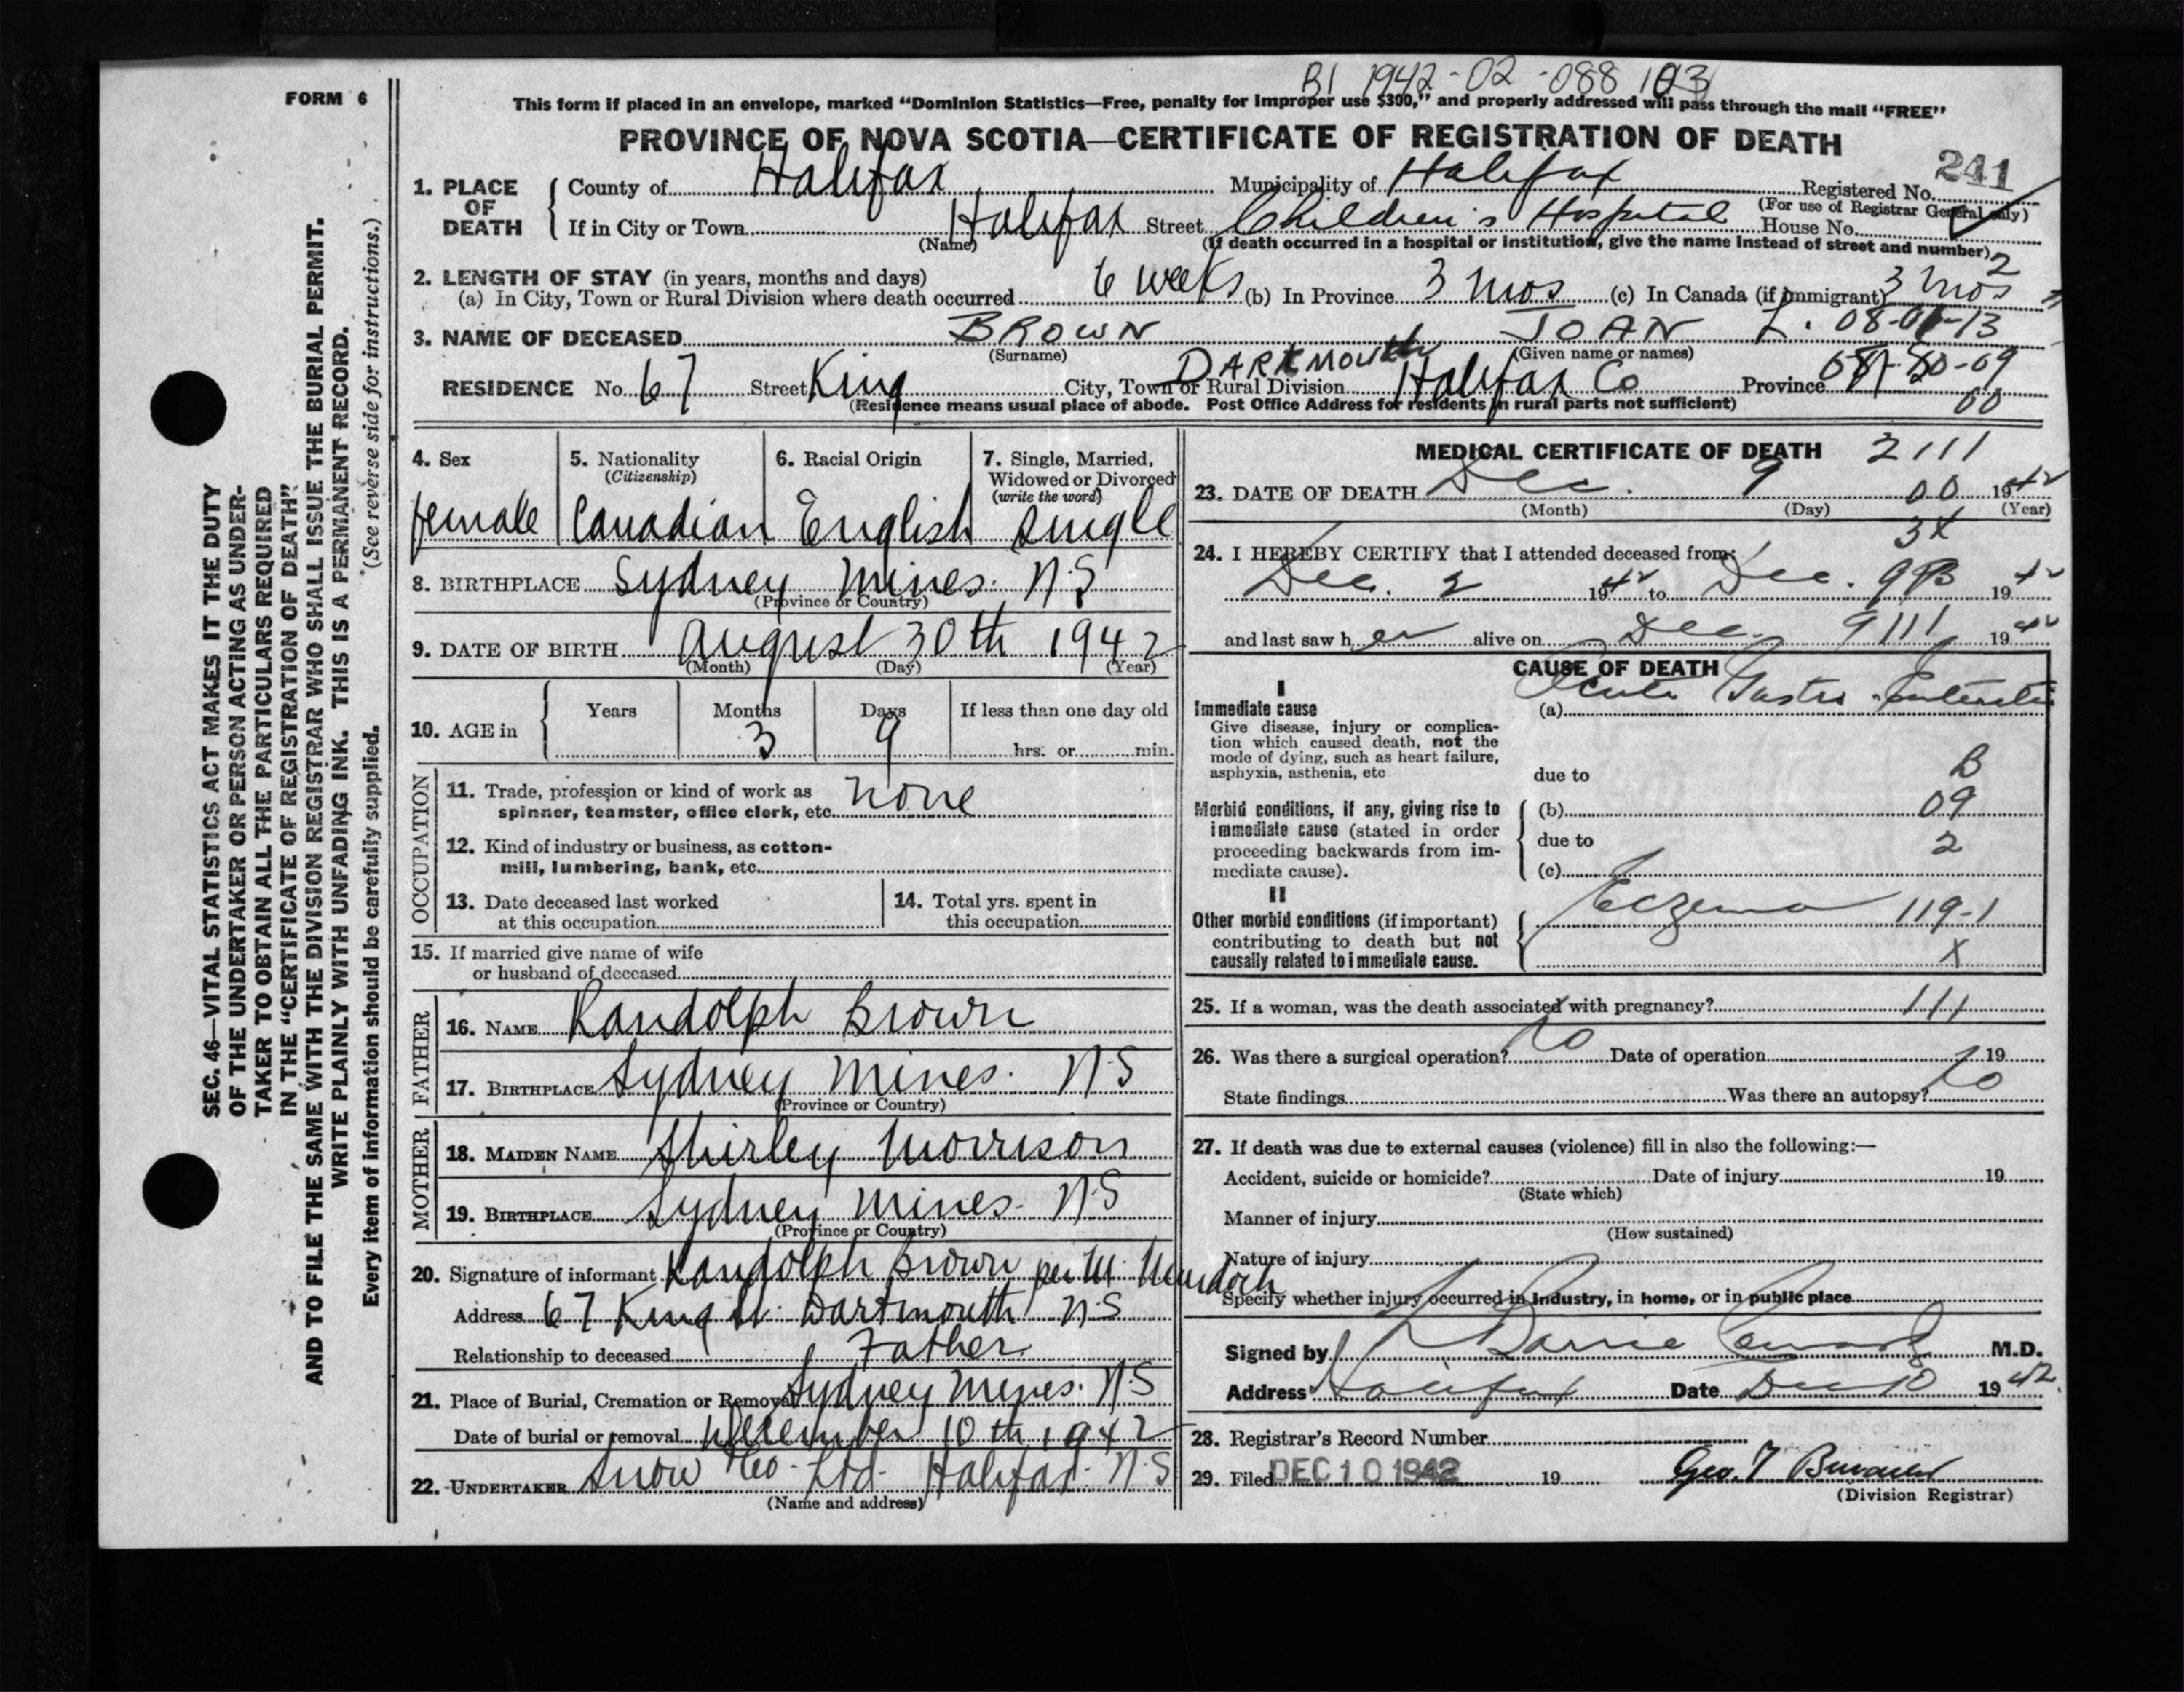 BI 1942-02-088103
FORM 6
This form if placed in an envelope, marked "Dominion Statistics—Free, penalty for improper use $300," and properly addressed will pass through the mail "FREE"
PROVINCE OF NOVA SCOTIA—CERTIFICATE OF REGISTRATION OF DEATH
241
1. PLACE OF DEATH County of Halifax Municipality of Halifax Registered No.
(For use of Registrar General only)
If in City or Town Halifax Street Children's Hospital House No.
(Name) (If death occurred in a hospital or institution, give the name instead of street and number)
2. LENGTH OF STAY (in years, months and days) 2
(a) In City, Town or Rural Division where death occurred 6 weeks (b) In Province 3 mos (c) In Canada (if immigrant) 3 mos
3. NAME OF DECEASED BROWN JOAN L. 08-01-13
(Surname) (Given name or names)
DARTMOUTH
RESIDENCE No. 67 Street King City, Town or Rural Division Halifax Co Province
(Residence means usual place of abode. Post Office Address for residents in rural parts not sufficient) 00
4. Sex female
5. Nationality (Citizenship) Canadian
6. Racial Origin English
7. Single, Married, Widowed or Divorced (write the word) Single
8. BIRTHPLACE Sydney Mines. N.S
(Province or Country)
9. DATE OF BIRTH August 30th 1942
(Month) (Day) (Year)
10. AGE in Years Months Days If less than one day old
3 9 hrs. or min.
OCCUPATION
11. Trade, profession or kind of work as
spinner, teamster, office clerk, etc. none
12. Kind of industry or business, as cotton-
mill, lumbering, bank, etc.
13. Date deceased last worked
at this occupation
14. Total yrs. spent in
this occupation
15. If married give name of wife
or husband of deceased
FATHER
16. NAME Randolph Brown
17. BIRTHPLACE Sydney Mines. N.S
(Province or Country)
MOTHER
18. MAIDEN NAME Shirley Morrison
19. BIRTHPLACE Sydney Mines. N.S
(Province or Country)
20. Signature of informant Randolph Brown per M. Murdoch
Address 67 King St. Dartmouth N.S
Relationship to deceased Father
21. Place of Burial, Cremation or Removal Sydney Mines. N.S
Date of burial or removal December 10th 1942
22. UNDERTAKER Snow & Co. Ltd. Halifax. N.S
(Name and address)
MEDICAL CERTIFICATE OF DEATH 2111
23. DATE OF DEATH Dec. 9 00 1942
(Month) (Day) (Year)
3X
24. I HEREBY CERTIFY that I attended deceased from:
Dec. 2 1942 to Dec. 9 1942
and last saw her alive on Dec. 9 111 1942
CAUSE OF DEATH
I
Immediate cause (a) Acute Gastro-Enteritis
Give disease, injury or complica-
tion which caused death, not the
mode of dying, such as heart failure,
asphyxia, asthenia, etc due to B
Morbid conditions, if any, giving rise to (b) 09
immediate cause (stated in order due to 2
proceeding backwards from im-
mediate cause). (c)
II
Other morbid conditions (if important) Eczema 119-1
contributing to death but not
causally related to immediate cause. X
25. If a woman, was the death associated with pregnancy? 111
26. Was there a surgical operation? No Date of operation 19
State findings Was there an autopsy? No
27. If death was due to external causes (violence) fill in also the following:—
Accident, suicide or homicide? Date of injury 19
(State which)
Manner of injury
(How sustained)
Nature of injury
Specify whether injury occurred in industry, in home, or in public place
Signed by Barrie M.D.
Address Halifax Date Dec 10 1942.
28. Registrar's Record Number
29. Filed DEC 10 1942 19 Geo. T
(Division Registrar)
SEC. 46—VITAL STATISTICS ACT MAKES IT THE DUTY
OF THE UNDERTAKER OR PERSON ACTING AS UNDER-
TAKER TO OBTAIN ALL THE PARTICULARS REQUIRED
IN THE "CERTIFICATE OF REGISTRATION OF DEATH"
AND TO FILE THE SAME WITH THE DIVISION REGISTRAR WHO SHALL ISSUE THE BURIAL PERMIT.
WRITE PLAINLY WITH UNFADING INK. THIS IS A PERMANENT RECORD.
Every item of information should be carefully supplied. (See reverse side for instructions.)